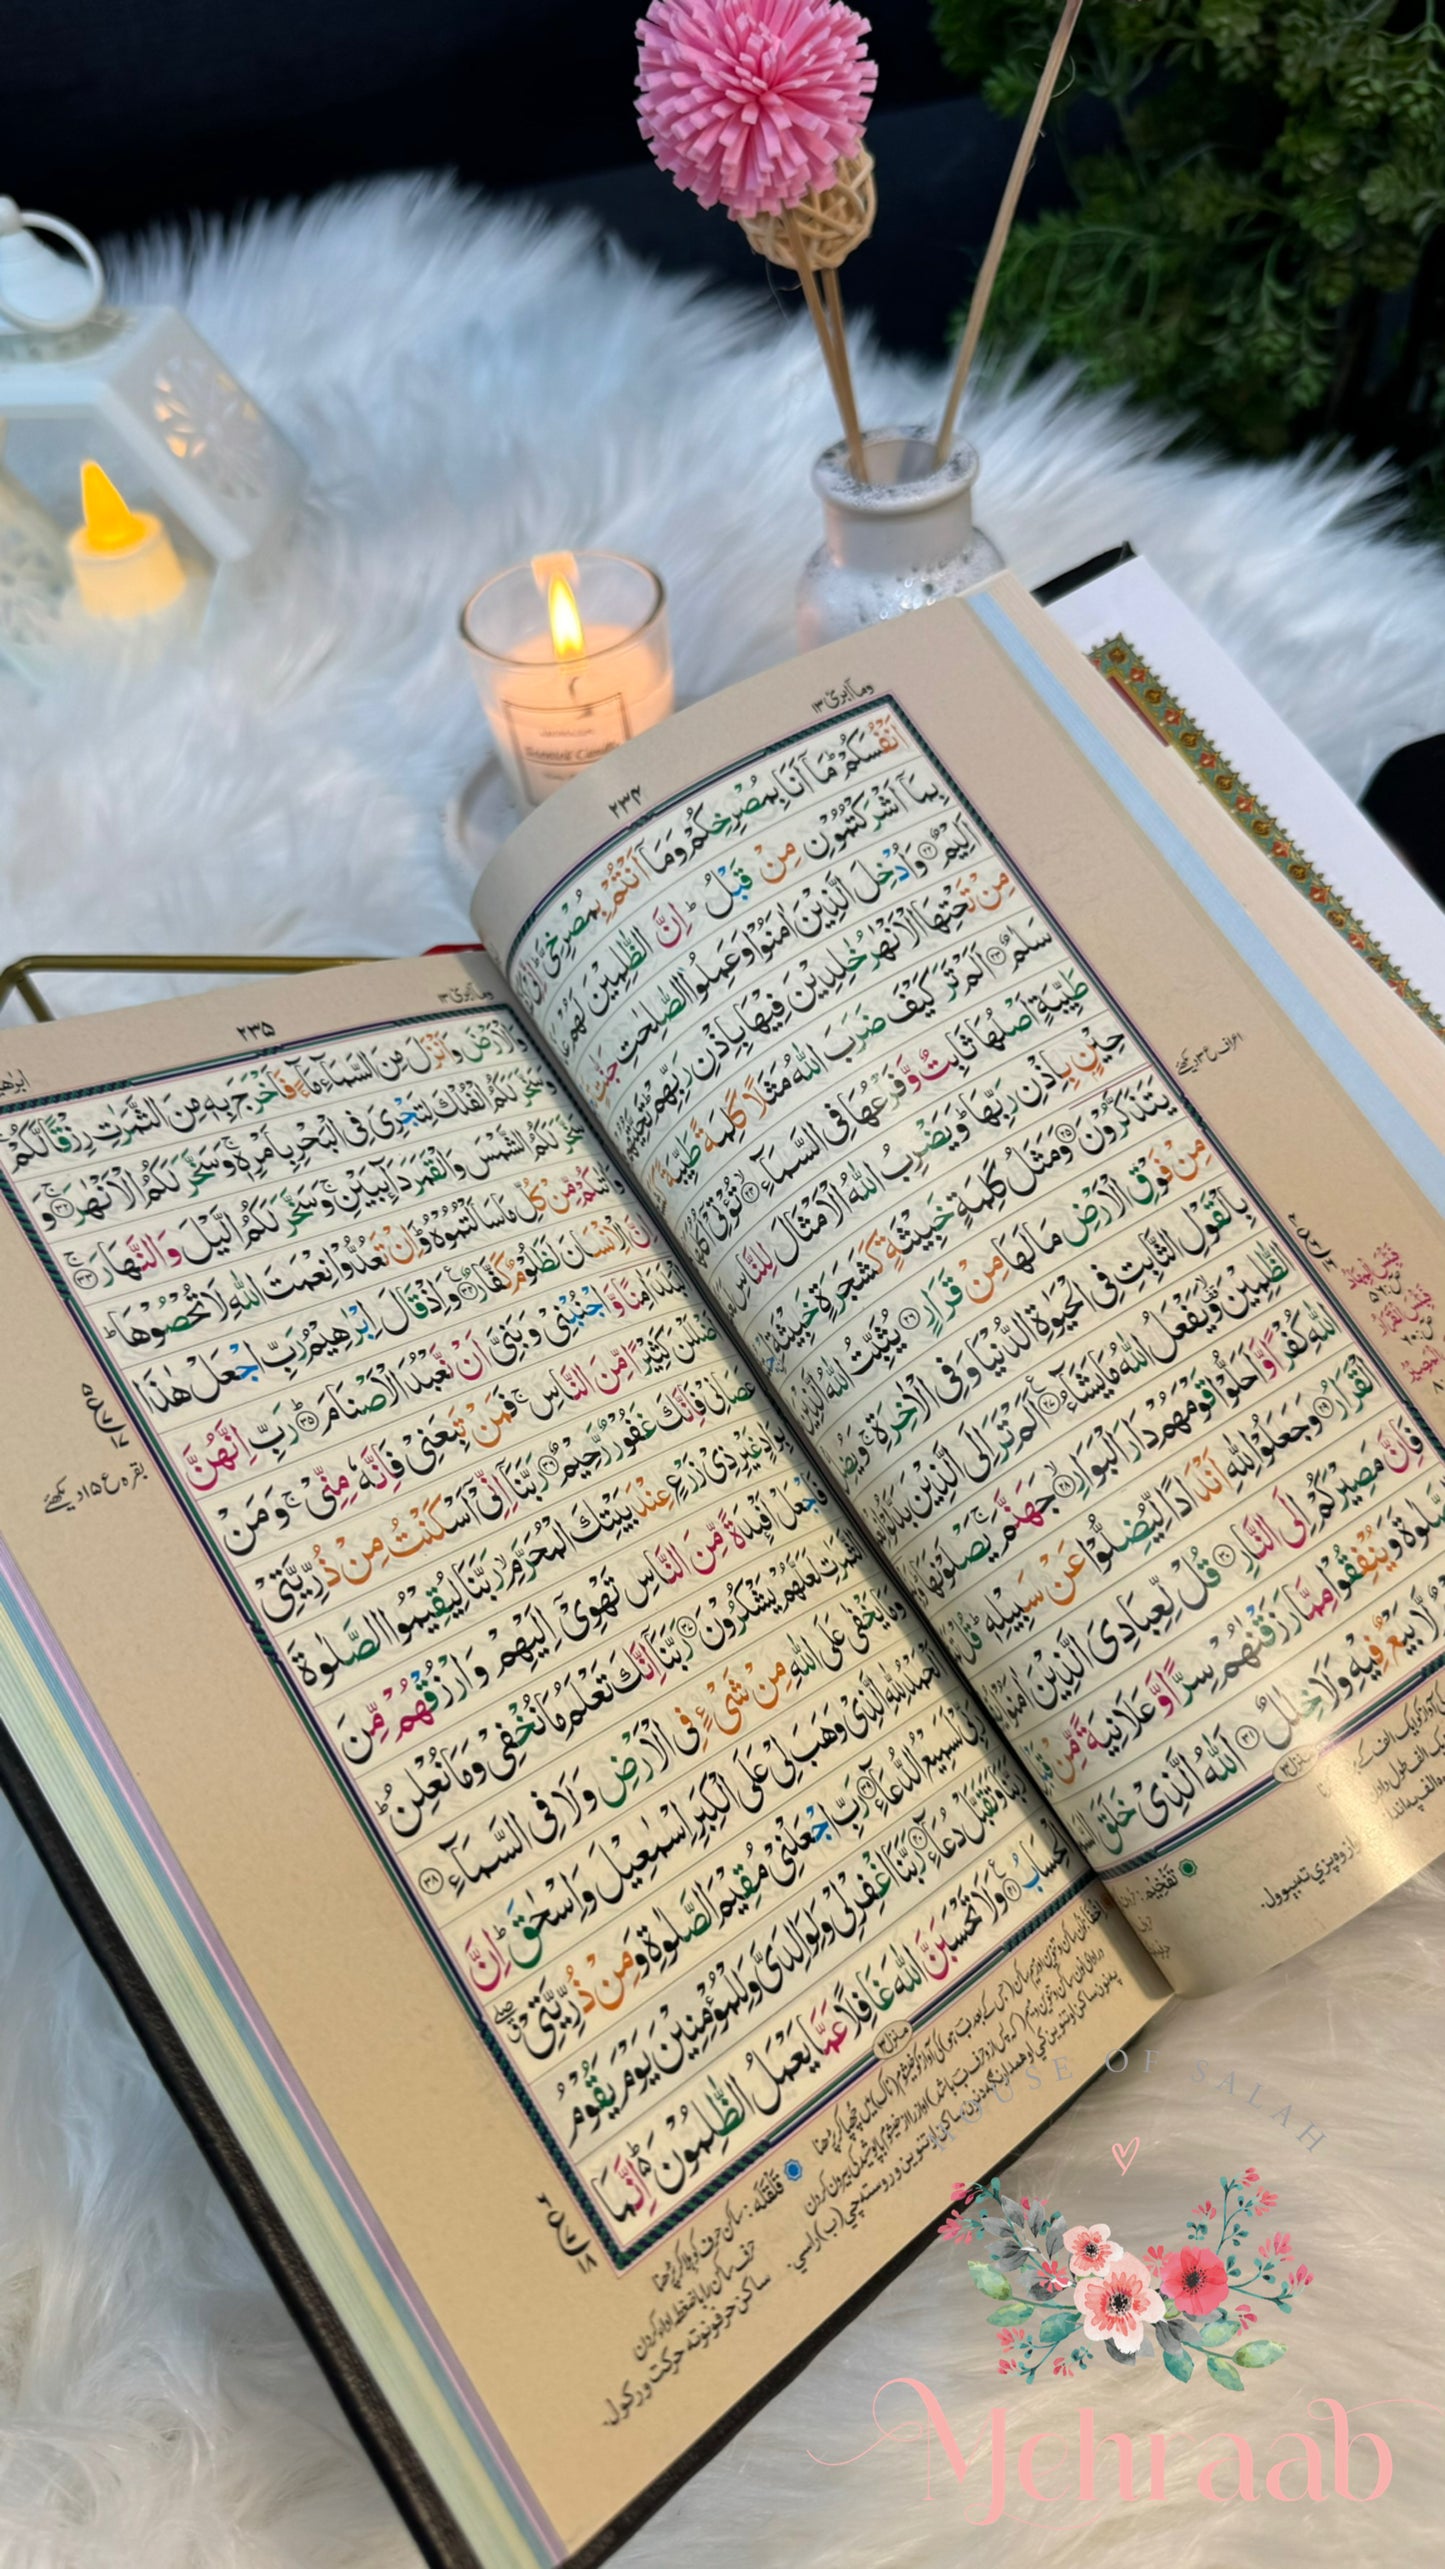 وماابرئ ١٣
٢٣٤
اَنْفُسَكُمْ ؕ مَاۤ اَنَا بِمُصْرِخِكُمْ وَمَاۤ اَنْتُمْ بِمُصْرِخِیَّ ؕ
بِمَاۤ اَشْرَكْتُمُوْنِ مِنْ قَبْلُ ؕ اِنَّ الظّٰلِمِيْنَ لَهُمْ
اَلِيْمٌ ﴿٢٢﴾ وَاُدْخِلَ الَّذِيْنَ اٰمَنُوْا وَعَمِلُوا الصّٰلِحٰتِ جَنّٰتٍ
مِنْ تَحْتِهَا الْاَنْهٰرُ خٰلِدِيْنَ فِيْهَا بِاِذْنِ رَبِّهِمْ ؕ تَحِيَّتُهُمْ
سَلٰمٌ ﴿٢٣﴾ اَلَمْ تَرَ كَيْفَ ضَرَبَ اللّٰهُ مَثَلًا كَلِمَةً طَيِّبَةً
طَيِّبَةٍ اَصْلُهَا ثَابِتٌ وَّفَرْعُهَا فِی السَّمَآءِ ﴿٢٤﴾ تُؤْتِیْۤ اُكُلَهَا
حِيْنٍۭ بِاِذْنِ رَبِّهَا ؕ وَيَضْرِبُ اللّٰهُ الْاَمْثَالَ لِلنَّاسِ
يَتَذَكَّرُوْنَ ﴿٢٥﴾ وَمَثَلُ كَلِمَةٍ خَبِيْثَةٍ كَشَجَرَةٍ خَبِيْثَةِ
مِنْ فَوْقِ الْاَرْضِ مَا لَهَا مِنْ قَرَارٍ ﴿٢٦﴾ يُثَبِّتُ اللّٰهُ الَّذِيْنَ
بِالْقَوْلِ الثَّابِتِ فِی الْحَيٰوةِ الدُّنْيَا وَفِی الْاٰخِرَةِ ۚ وَيُضِلُّ
الظّٰلِمِيْنَ ۙ وَيَفْعَلُ اللّٰهُ مَا يَشَآءُ ﴿٢٧﴾ اَلَمْ تَرَ اِلَی الَّذِيْنَ بَدَّلُوْا
اللّٰهِ كُفْرًا وَّاَحَلُّوْا قَوْمَهُمْ دَارَ الْبَوَارِ ﴿٢٨﴾ جَهَنَّمَ ۚ يَصْلَوْنَهَا
الْقَرَارُ ﴿٢٩﴾ وَجَعَلُوْا لِلّٰهِ اَنْدَادًا لِّيُضِلُّوْا عَنْ سَبِيْلِهٖ ؕ قُلْ
فَاِنَّ مَصِيْرَكُمْ اِلَی النَّارِ ﴿٣٠﴾ قُلْ لِّعِبَادِیَ الَّذِيْنَ اٰمَنُوْا
الصَّلٰوةَ وَيُنْفِقُوْا مِمَّا رَزَقْنٰهُمْ سِرًّا وَّعَلَانِيَةً مِّنْ قَبْلِ
لَّا بَيْعٌ فِيْهِ وَلَا خِلٰلٌ ﴿٣١﴾ اَللّٰهُ الَّذِیْ خَلَقَ
منزل ٣
تَفْخِيْم :
وماابرئ ١٣
٢٣٥
وَالْاَرْضَ وَاَنْزَلَ مِنَ السَّمَآءِ مَآءً فَاَخْرَجَ بِهٖ مِنَ الثَّمَرٰتِ رِزْقًا لَّكُمْ ۚ
وَسَخَّرَ لَكُمُ الْفُلْكَ لِتَجْرِیَ فِی الْبَحْرِ بِاَمْرِهٖ ۚ وَسَخَّرَ لَكُمُ الْاَنْهٰرَ ﴿٣٢﴾ وَ
سَخَّرَ لَكُمُ الشَّمْسَ وَالْقَمَرَ دَآئِبَيْنِ ۚ وَسَخَّرَ لَكُمُ الَّيْلَ وَالنَّهَارَ ﴿٣٣﴾
وَاٰتٰىكُمْ مِّنْ كُلِّ مَا سَاَلْتُمُوْهُ ؕ وَاِنْ تَعُدُّوْا نِعْمَتَ اللّٰهِ لَا تُحْصُوْهَا ؕ
اِنَّ الْاِنْسَانَ لَظَلُوْمٌ كَفَّارٌ ﴿٣٤﴾ وَاِذْ قَالَ اِبْرٰهِيْمُ رَبِّ اجْعَلْ هٰذَا
الْبَلَدَ اٰمِنًا وَّاجْنُبْنِیْ وَبَنِیَّ اَنْ نَّعْبُدَ الْاَصْنَامَ ﴿٣٥﴾ رَبِّ اِنَّهُنَّ
اَضْلَلْنَ كَثِيْرًا مِّنَ النَّاسِ ۚ فَمَنْ تَبِعَنِیْ فَاِنَّهٗ مِنِّیْ ۚ وَمَنْ
عَصَانِیْ فَاِنَّكَ غَفُوْرٌ رَّحِيْمٌ ﴿٣٦﴾ رَبَّنَاۤ اِنِّیْۤ اَسْكَنْتُ مِنْ ذُرِّيَّتِیْ
بِوَادٍ غَيْرِ ذِیْ زَرْعٍ عِنْدَ بَيْتِكَ الْمُحَرَّمِ ۙ رَبَّنَا لِيُقِيْمُوا الصَّلٰوةَ
فَاجْعَلْ اَفْئِدَةً مِّنَ النَّاسِ تَهْوِیْۤ اِلَيْهِمْ وَارْزُقْهُمْ مِّنَ
الثَّمَرٰتِ لَعَلَّهُمْ يَشْكُرُوْنَ ﴿٣٧﴾ رَبَّنَاۤ اِنَّكَ تَعْلَمُ مَا نُخْفِیْ وَمَا نُعْلِنُ ؕ
وَمَا يَخْفٰى عَلَى اللّٰهِ مِنْ شَیْءٍ فِی الْاَرْضِ وَلَا فِی السَّمَآءِ ﴿٣٨﴾
اَلْحَمْدُ لِلّٰهِ الَّذِیْ وَهَبَ لِیْ عَلَى الْكِبَرِ اِسْمٰعِيْلَ وَاِسْحٰقَ ؕ اِنَّ
رَبِّیْ لَسَمِيْعُ الدُّعَآءِ ﴿٣٩﴾ رَبِّ اجْعَلْنِیْ مُقِيْمَ الصَّلٰوةِ وَمِنْ ذُرِّيَّتِیْ
رَبَّنَا وَتَقَبَّلْ دُعَآءِ ﴿٤٠﴾ رَبَّنَا اغْفِرْ لِیْ وَلِوَالِدَیَّ وَلِلْمُؤْمِنِيْنَ يَوْمَ يَقُوْمُ
الْحِسَابُ ﴿٤١﴾ وَلَا تَحْسَبَنَّ اللّٰهَ غَافِلًا عَمَّا يَعْمَلُ الظّٰلِمُوْنَ ؕ اِنَّمَا
منزل ٣
بقره ع ١٥ دیکھئے
قَلْقَلَه : ساکن حرف کو ہلا کر پڑھنا
ساکن حرفونو ته حرکت ورکول.
HOUSE OF SALAH
Mehraab